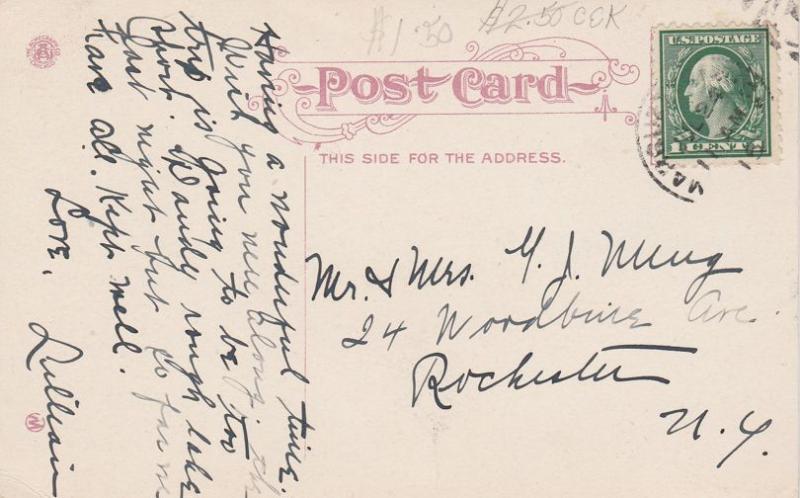 $1.50
$2.50 CCK
U.S. POSTAGE
1 CENT 1
Post Card
THIS SIDE FOR THE ADDRESS.
Having a wonderful time.
Wish you were along. the
trip is going to be too
short. Dandy rough lake
last night but so far we
have all kept well.
Love,
Lillian
Mr. & Mrs. Y. J. Meng
24 Woodbine Ave.
Rochester
N.Y.